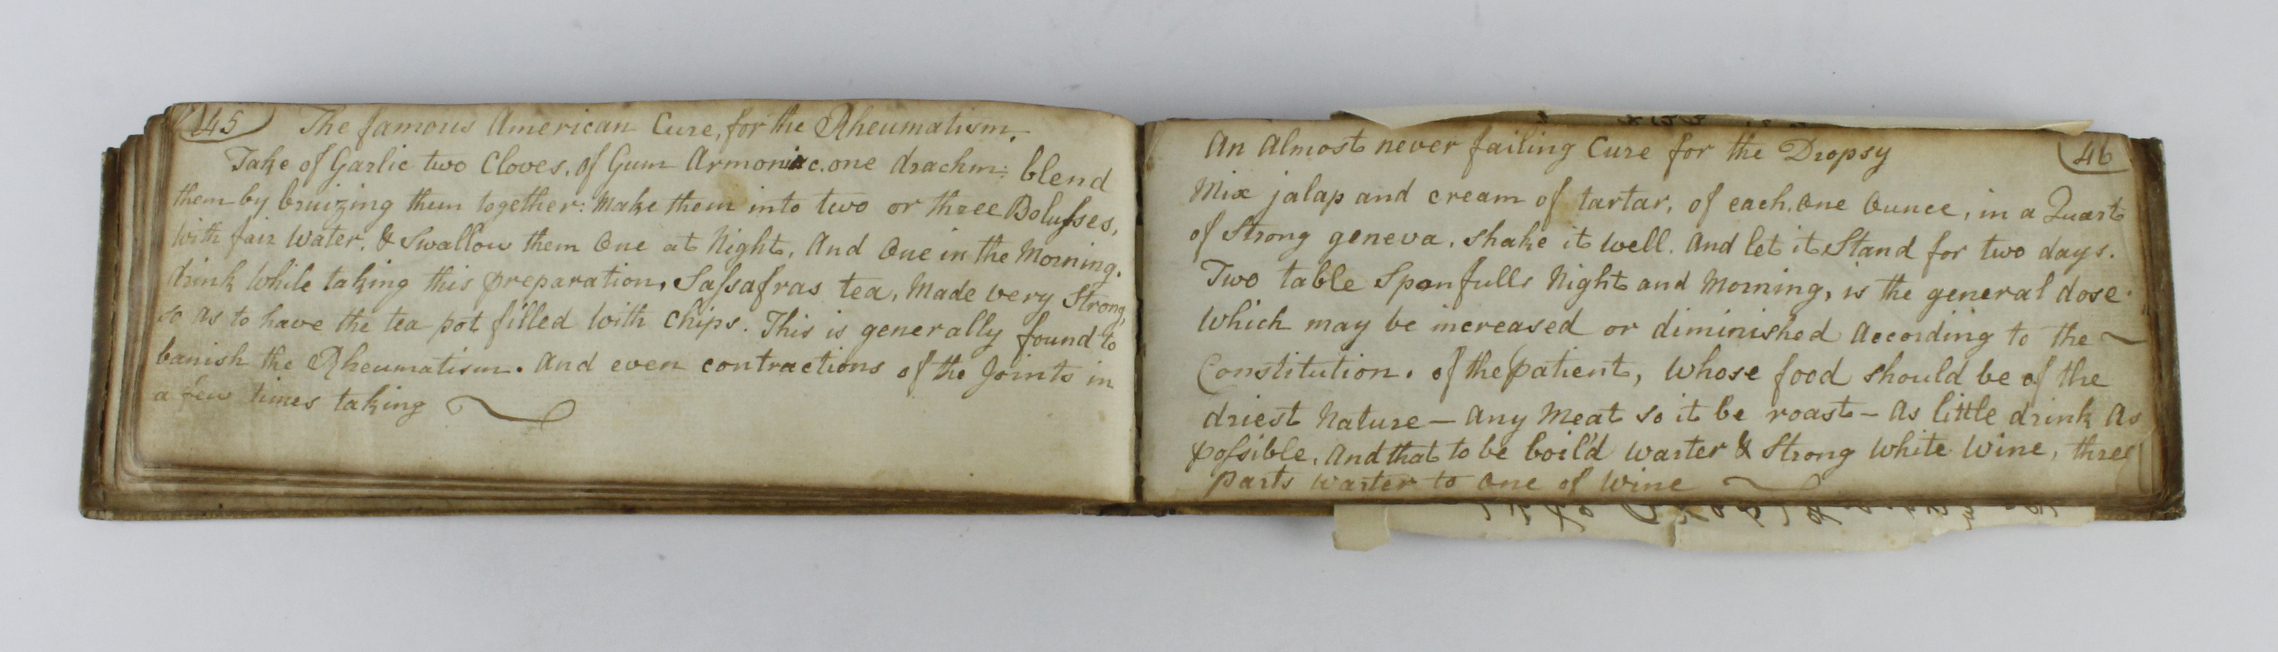 45
The famous American Cure, for the Rheumatism.
Take of Garlic two Cloves, of Gum Armoniac. one drachm: blend
them by bruizing them together: Make them into two or three Bolusses,
With fair Water. & Swallow them One at Night, And One in the Morning.
drink While taking this preparation, Sassafras tea, Made very Strong,
So as to have the tea pot filled With Chips. This is generally found to
banish the Rheumatism. And even contractions of the Joints in
a few times taking
46
An Almost never failing Cure for the Dropsy
Mix jalap and cream of tartar, of each. One Ounce, in a Quart
of Strong geneva. shake it Well. And let it Stand for two days.
Two table Sponfulls Night and Morning, is the general dose.
Which may be increased or diminished According to the
Constitution. of the Patient, Whose food should be of the
driest Nature — Any Meat so it be roast — As little drink As
possible. And that to be boil'd Warter & Strong White Wine, three
Parts Warter to One of Wine